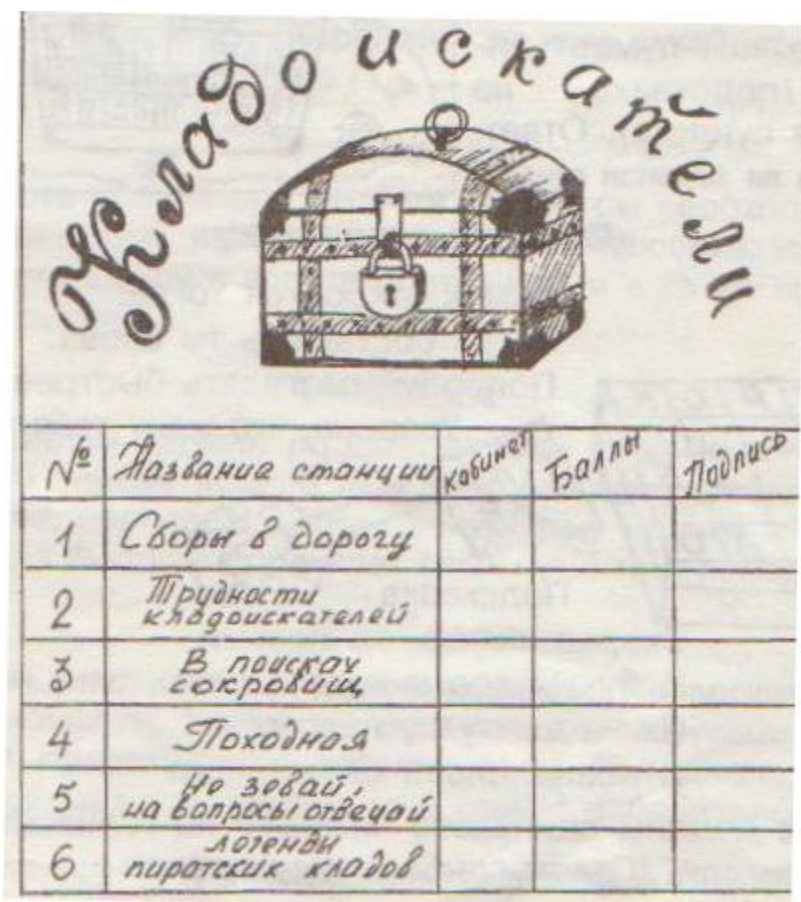 Кладоискатели
№ Название станции кабинет Баллы Подпись
1 Сборы в дорогу
2 Трудности
кладоискателей
3 В поисках
сокровищ
4 Походная
5 Не зевай,
на вопросы отвечай
6 Легенды
пиратских кладов